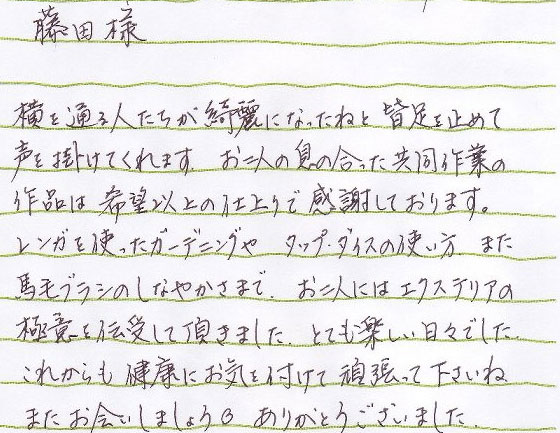 藤田様
横を通る人たちが綺麗になったねと 皆足を止めて
声を掛けてくれます。お二人の息の合った共同作業の
作品は希望以上の仕上りで感謝しております。
レンガを使ったガーデニングや タップ・ダイスの使い方 また
馬毛ブラシのしなやかさまで、お二人にはエクステリアの
極意を伝受して頂きました。とても楽しい日々でした。
これからも健康にお気を付けて頑張って下さいね
またお会いしましょう ありがとうございました。